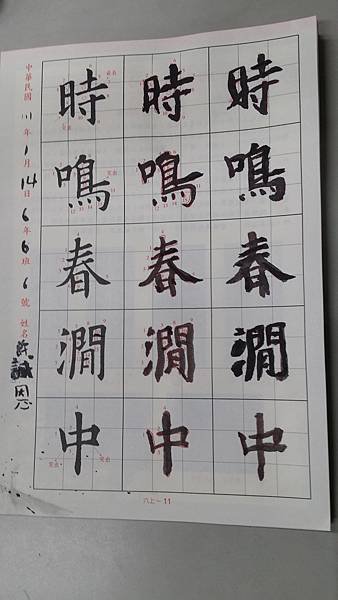 時鳴春澗中
時鳴春澗中
時鳴春澗中
中華民國111年1月14日6年6班6號 姓名許誠恩
六上－11